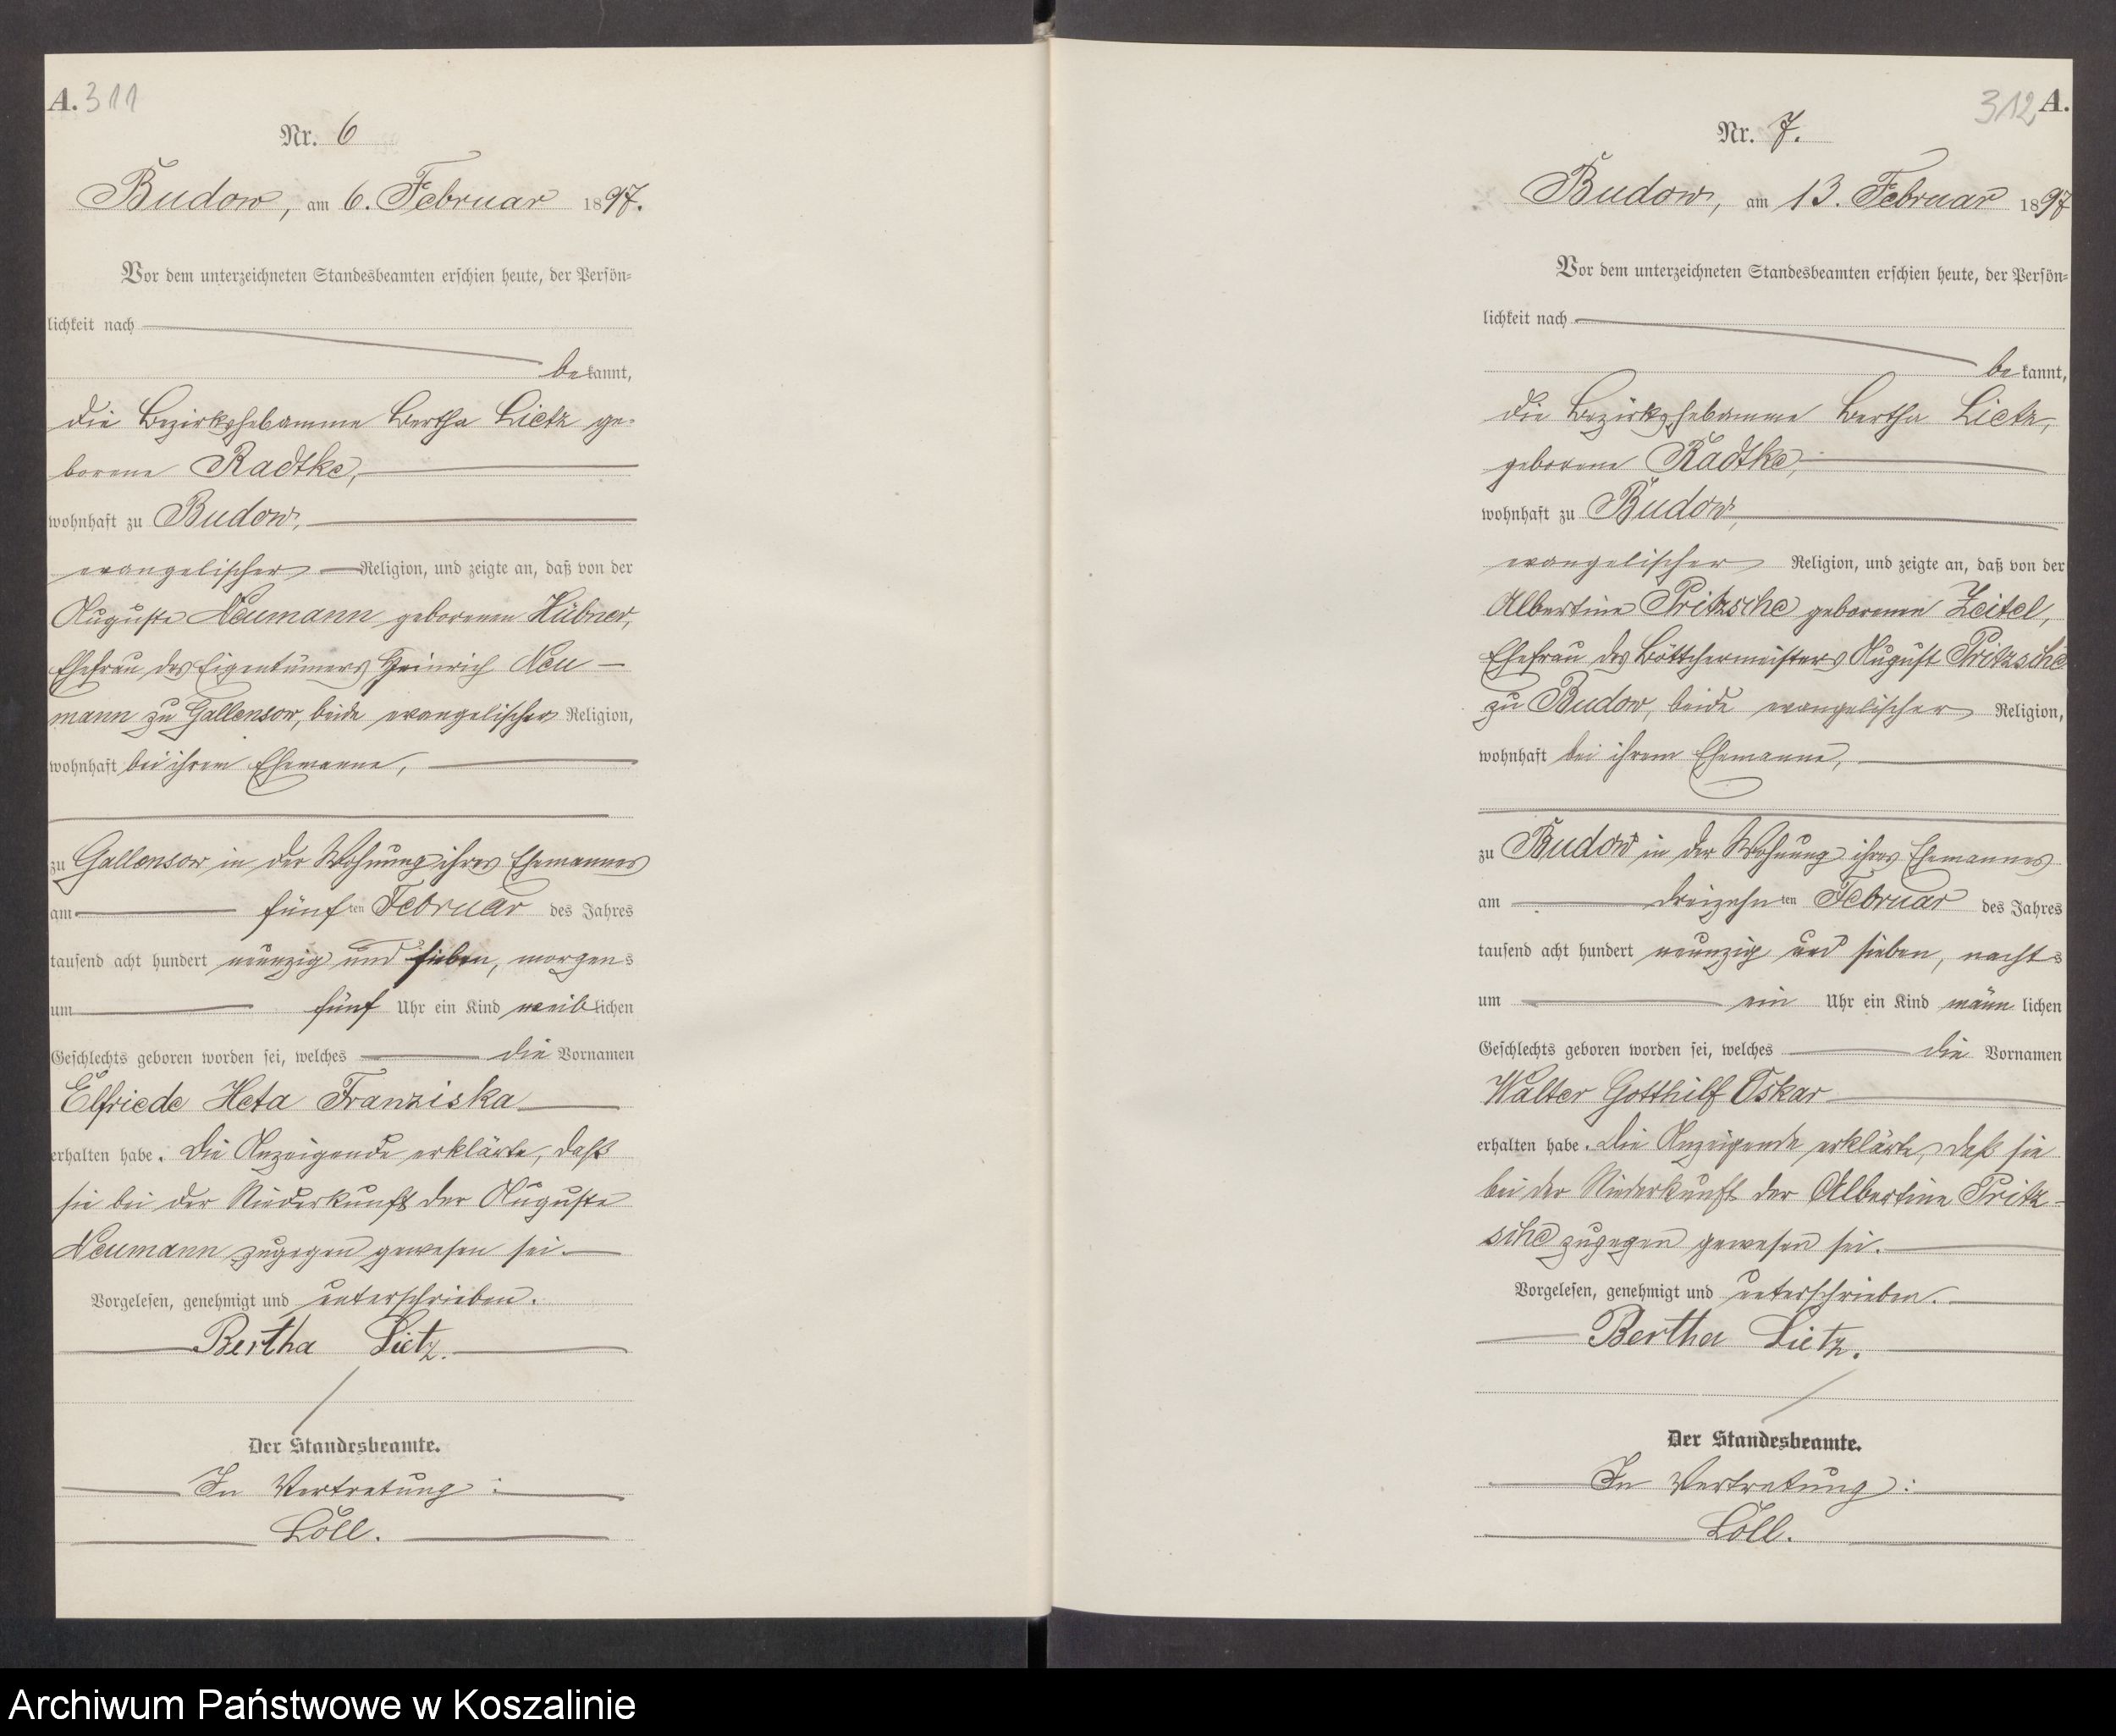 A. 311
Nr. 6
Budow, am 6. Februar 1897.
Vor dem unterzeichneten Standesbeamten erschien heute, der Persön=
lichkeit nach
bekannt,
die Bezirkshebamme Bertha Lietz ge-
borene Radtke,
wohnhaft zu Budow,
evangelischer Religion, und zeigte an, daß von der
Auguste Neumann geborenen Hübner,
Ehefrau des Eigentümers Heinrich Neu-
mann zu Gallensow, beide evangelischer Religion,
wohnhaft bei ihrem Ehemanne,
zu Gallensow in der Wohnung ihres Ehemannes
am fünften Februar des Jahres
tausend acht hundert neunzig und sieben, morgens
um fünf Uhr ein Kind weiblichen
Geschlechts geboren worden sei, welches die Vornamen
Elfriede Heta Franziska
erhalten habe. Die Anzeigende erklärte, daß
sie bei der Niederkunft der Auguste
Neumann zugegen gewesen sei.
Vorgelesen, genehmigt und unterschrieben.
Bertha Lietz.
Der Standesbeamte.
In Vertretung:
Löll.
312 A.
Nr. 7.
Budow, am 13. Februar 1897
Vor dem unterzeichneten Standesbeamten erschien heute, der Persön=
lichkeit nach
bekannt,
die Bezirkshebamme Bertha Lietz,
geborene Radtke,
wohnhaft zu Budow,
evangelischer Religion, und zeigte an, daß von der
Albertine Pritzsche geborenen Zeitel,
Ehefrau des Böttchermeisters August Pritzsche
zu Budow, beide evangelischer Religion,
wohnhaft bei ihrem Ehemanne,
zu Budow in der Wohnung ihres Ehemannes
am dreizehnten Februar des Jahres
tausend acht hundert neunzig und sieben, nachts
um ein Uhr ein Kind männlichen
Geschlechts geboren worden sei, welches die Vornamen
Walter Gotthilf Oskar
erhalten habe. Die Anzeigende erklärte, daß sie
bei der Niederkunft der Albertine Pritz-
sche zugegen gewesen sei.
Vorgelesen, genehmigt und unterschrieben.
Bertha Lietz.
Der Standesbeamte.
In Vertretung:
Löll.
Archiwum Państwowe w Koszalinie